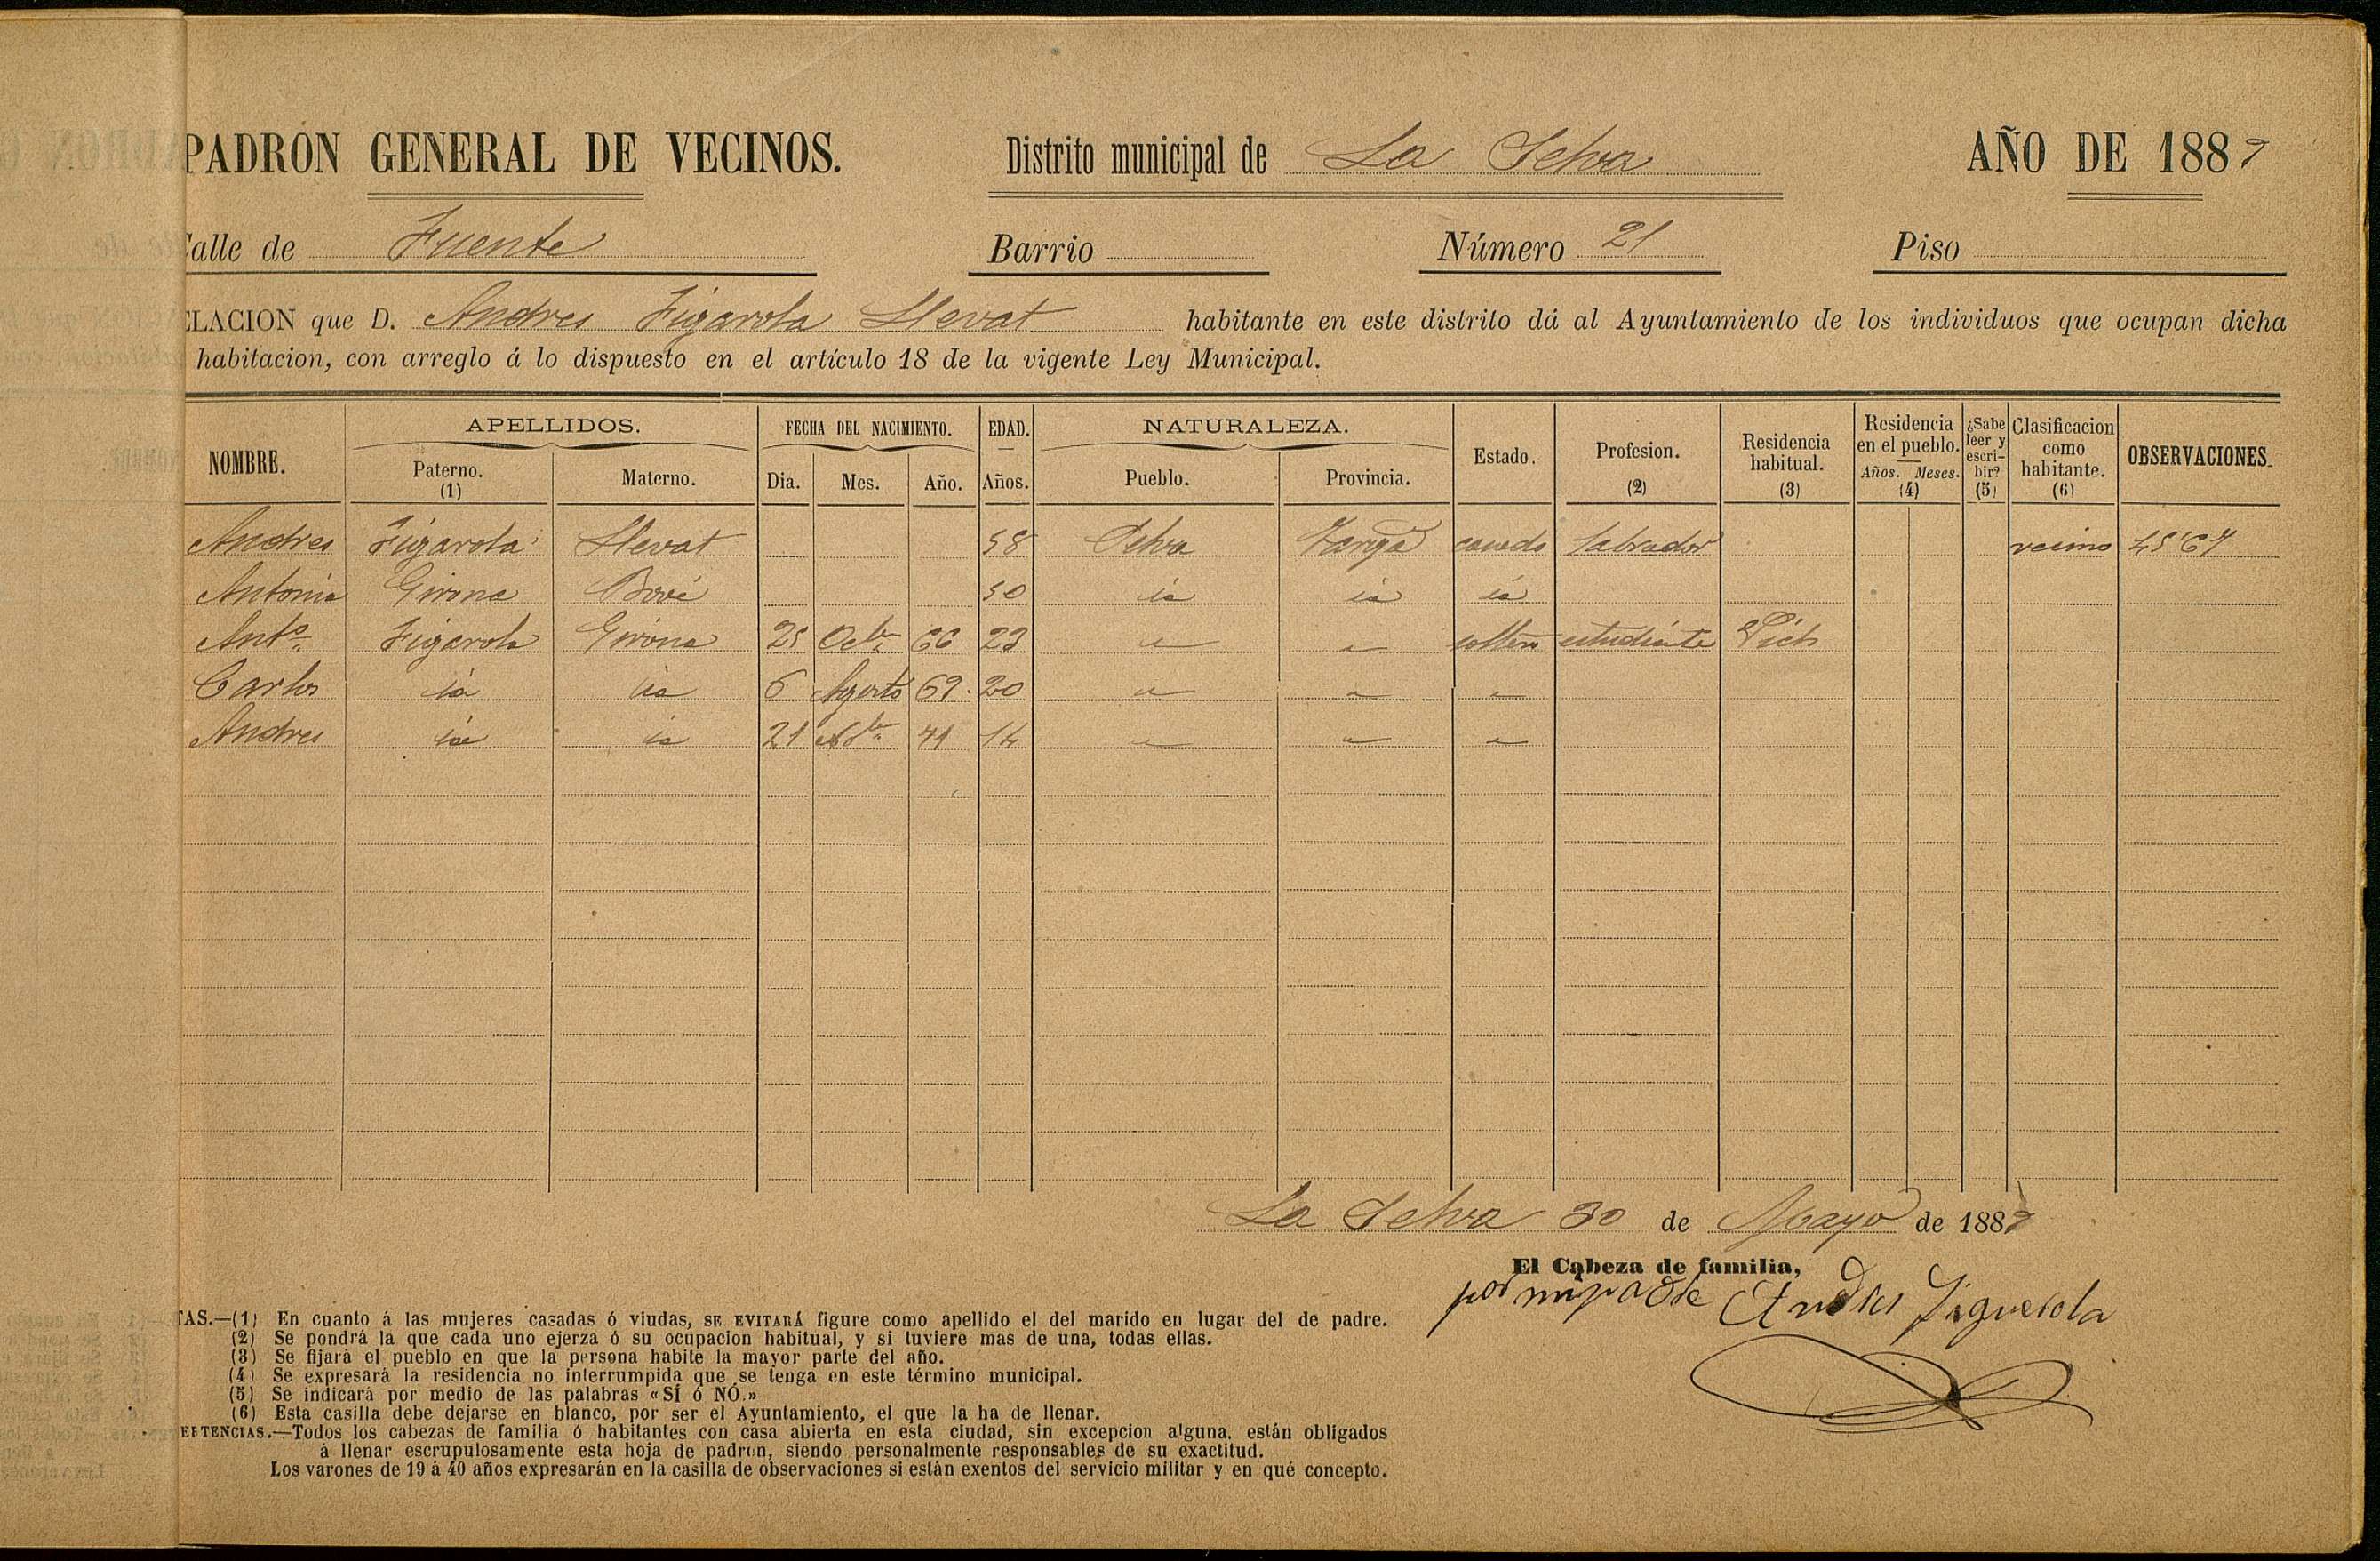 PADRON GENERAL DE VECINOS. Distrito municipal de La Selva AÑO DE 1889
Calle de Fuente Barrio Número 21 Piso
ELACION que D. Andres Figarola Llevat habitante en este distrito dá al Ayuntamiento de los individuos que ocupan dicha
habitacion, con arreglo á lo dispuesto en el artículo 18 de la vigente Ley Municipal.
NOMBRE. APELLIDOS. Paterno. (1) Materno. FECHA DEL NACIMIENTO. Dia. Mes. Año. EDAD. Años. NATURALEZA. Pueblo. Provincia. Estado. Profesion. (2) Residencia habitual. (3) Residencia en el pueblo. Años. Meses. (4) ¿Sabe leer y escribir? (5) Clasificacion como habitante. (6) OBSERVACIONES.
Andres Figarola Llevat 58 Selva Tarrgª casado labrador vecino 45'67
Antonia Girona Bové 50 id id id
Antº Figarola Girona 25 Octe 66 23 " " soltero estudiante
Carlos id id 6 Agosto 69 20 " " "
Andres id id 21 71 14 " " "
La Selva 30 de Mayo de 1889
El Cabeza de familia,
por mi padre Andres Figuerola
TAS.—(1) En cuanto á las mujeres casadas ó viudas, SE EVITARÁ figure como apellido el del marido en lugar del de padre.
(2) Se pondrá la que cada uno ejerza ó su ocupacion habitual, y si tuviere mas de una, todas ellas.
(3) Se fijará el pueblo en que la persona habite la mayor parte del año.
(4) Se expresará la residencia no interrumpida que se tenga en este término municipal.
(5) Se indicará por medio de las palabras «SÍ ó NÓ.»
(6) Esta casilla debe dejarse en blanco, por ser el Ayuntamiento, el que la ha de llenar.
ERTENCIAS.—Todos los cabezas de familia ó habitantes con casa abierta en esta ciudad, sin excepcion alguna, están obligados
á llenar escrupulosamente esta hoja de padron, siendo personalmente responsables de su exactitud.
Los varones de 19 á 40 años expresarán en la casilla de observaciones si están exentos del servicio militar y en qué concepto.